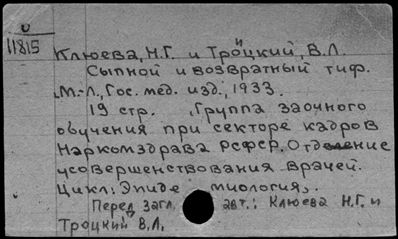 И
11815
Клюева, Н.Г. и Троцкий, В.Л.
Сыпной и возвратный тиф.
М.-Л., Гос. мед. изд., 1933.
19 стр. (Группа заочного
обучения при секторе кадров
Наркомздрава РСФСР. Отделение
усовершенствования врачей.
Цикл: Эпиде миология).
Перед загл. авт.: Клюева Н.Г. и
Троцкий В.Л.